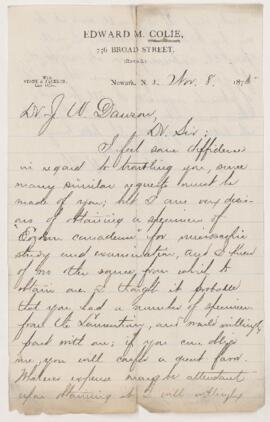 EDWARD M. COLIE,
776 BROAD STREET,
Newark, N. J., Nov. 8. 187
Dr J. W. Dawson,
Dr. Sir:
I feel some diffidence
in regard to troubling you, since
many similar requests must be
made of you; but I am very desir-
ous of obtaining a specimen of
"Eozoon canadense" for microscopic
study and examination, and I knew
of no other source from which to
obtain one. I thought it probable
that you had a number of specimens
from the Laurentian, and would willingly
part with one; if you can oblige
me, you will confer a great favor.
Whatever expense may be attendant
upon obtaining it I will willingly